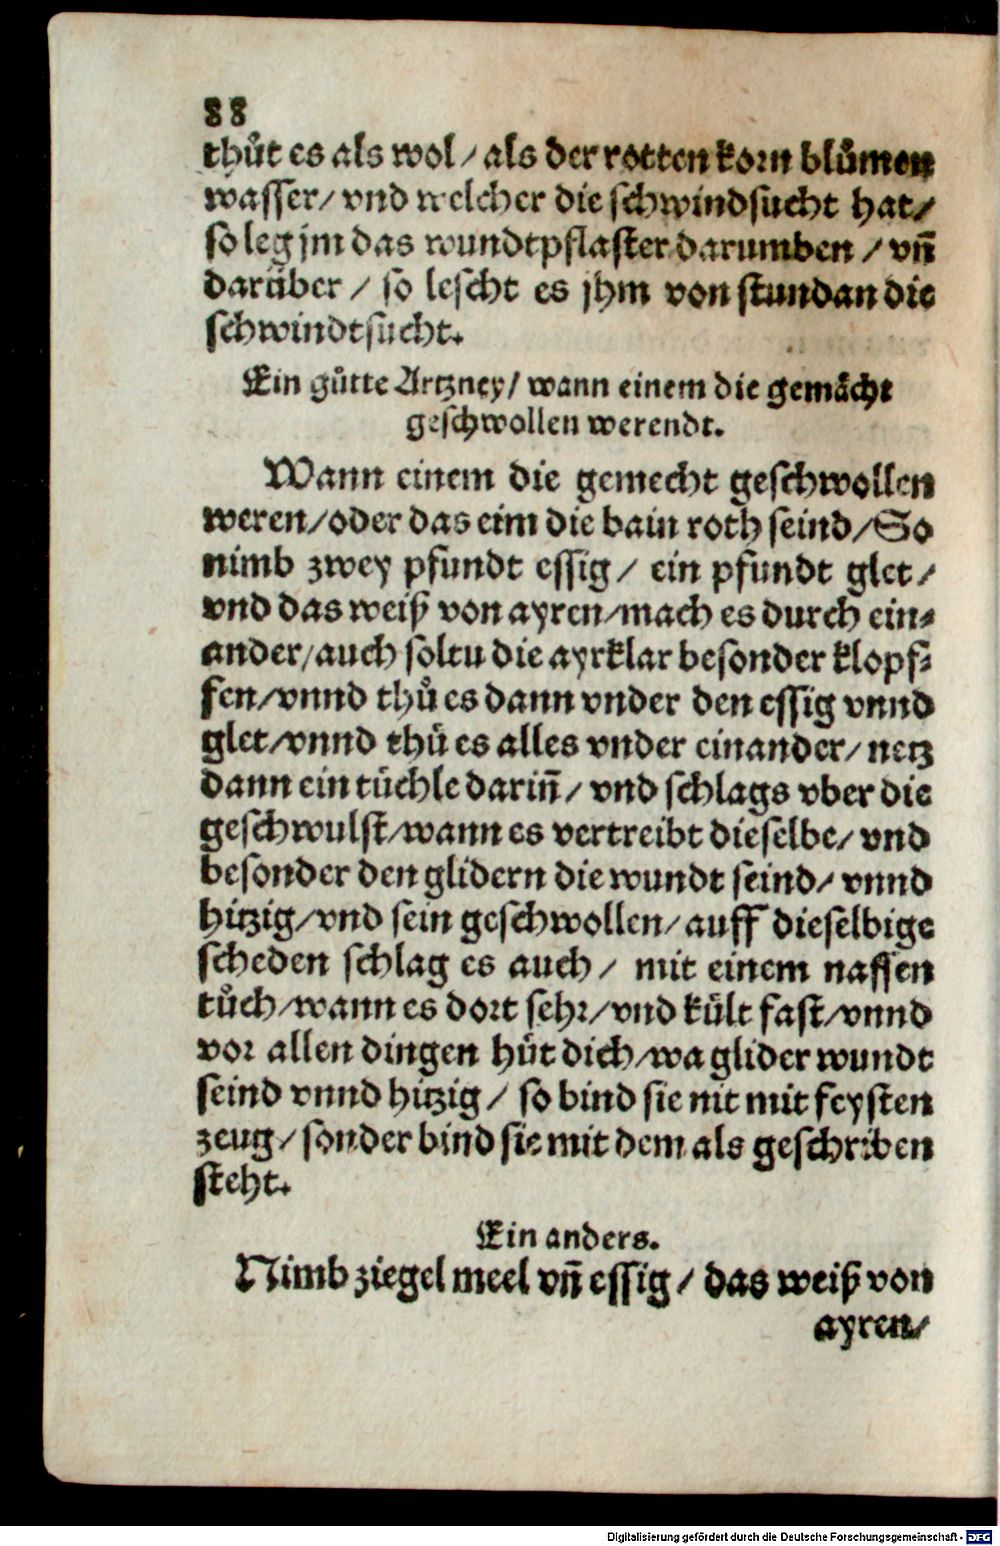 88
thůt es als wol / als der rotten korn blůmen
wasser / vnd welcher die schwindsucht hat /
so leg jm das wundtpflaster darumben / vñ
darüber / so lescht es jhm von stundan die
schwindtsucht.
Ein gůtte Artzney / wann einem die gemächt
geschwollen werendt.
Wann einem die gemecht geschwollen
weren / oder das eim die bain roth seind / So
nimb zwey pfundt essig / ein pfundt glet /
vnd das weiß von ayren / mach es durch ein⸗
ander / auch soltu die ayrklar besonder klopf⸗
fen / vnnd thů es dann vnder den essig vnnd
glet / vnnd thů es alles vnder einander / netz
dann ein tüchle dariñ / vnd schlags vber die
geschwulst / wann es vertreibt dieselbe / vnd
besonder den glidern die wundt seind / vnnd
hitzig / vnd sein geschwollen / auff dieselbige
scheden schlag es auch / mit einem nassen
tůch / wann es dort sehr / vnd kült fast / vnnd
vor allen dingen hüt dich / wa glider wundt
seind vnnd hitzig / so bind sie nit mit feysten
zeug / sonder bind sie mit dem als geschriben
steht.
Ein anders.
Nimb ziegel meel vñ essig / das weiß von
ayren /
Digitalisierung gefördert durch die Deutsche Forschungsgemeinschaft - DFG